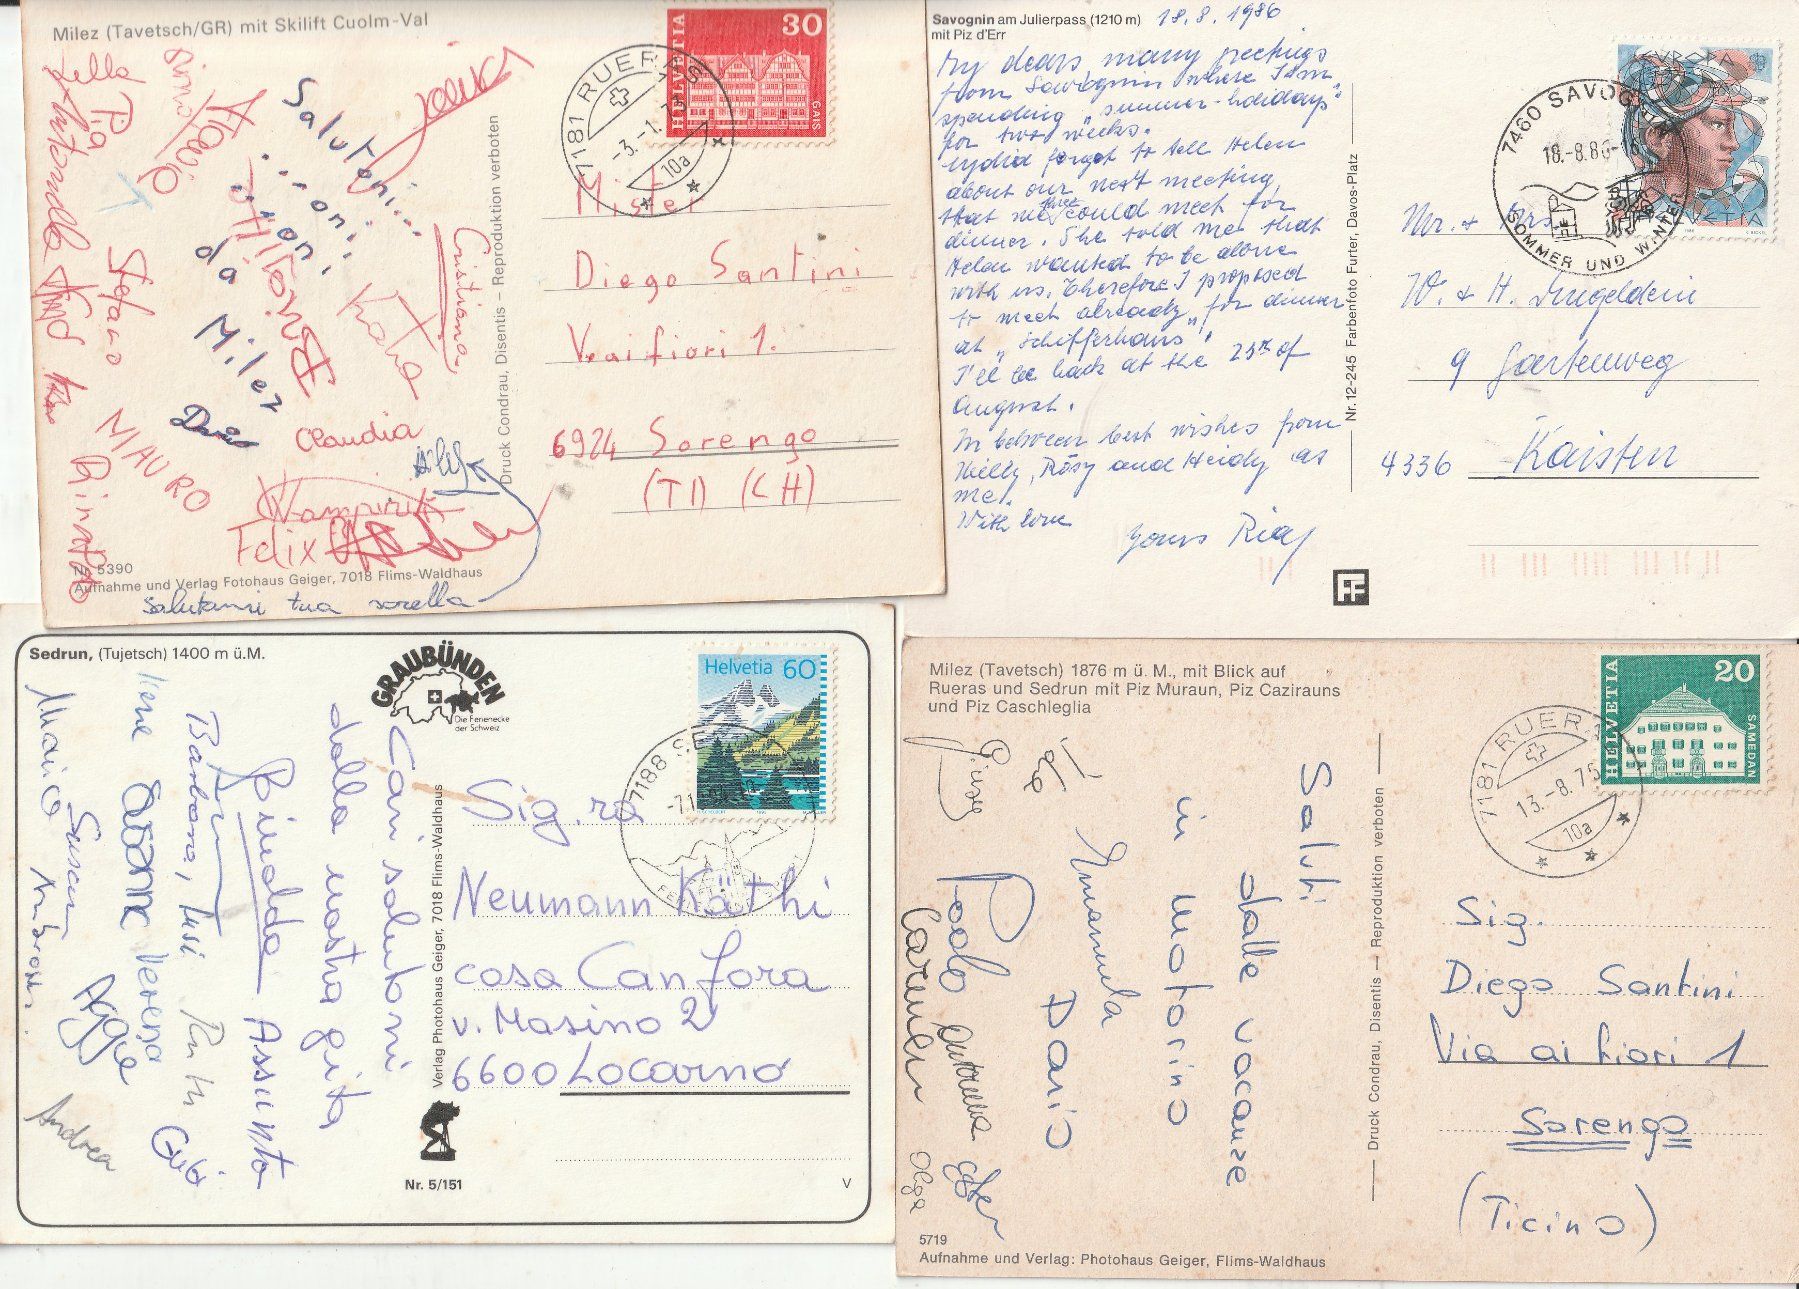 Milez (Tavetsch/GR) mit Skilift Cuolm-Val
HELVETIA
30
GAIS
7181 RUERAS
-3.-1.7
10a
Saluti
...oni...
...oni...
...oni.
da Milez
Pia
Flavio
Stefano
Cristiana
Katia
MAURO
Claudia
Rinaldo
Wampirita
Felix
salutami tua sorella
Mister
Diego Santini
V. ai fiori 1.
6924 Sorengo
(TI) (CH)
Druck Condrau, Disentis – Reproduktion verboten
Nr. 5390
Aufnahme und Verlag Fotohaus Geiger, 7018 Flims-Waldhaus
Savognin am Julierpass (1210 m)
mit Piz d'Err
18.8.1986
My dears many greetings
from Savognin where I am
spending "summer-holidays"
for two weeks.
Lydia forgot to tell Helen
about our next meeting,
that we three could meet for
dinner. She told me that
Helen wanted to be alone
with us. Therefore I proposed
to meet already for dinner
at "Schifferhaus"
I'll be back at the 25th of
August.
In between best wishes from
Willy, Rösy and Heidy as
me.
With love
yours
EUROPA
HELVETIA
7460 SAVOGNIN
18.-8.86
SOMMER UND WINTER
Mr. + Mrs.
W. + H. Ingeldein
9 Gartenweg
4336 Kaisten
Nr. 12-245 Farbenfoto Furter, Davos-Platz
FF
Sedrun, (Tujetsch) 1400 m ü.M.
GRAUBÜNDEN
Die Ferienecke
der Schweiz
Helvetia 60
7188 SE
Cari saluti
dalla nostra gita
Binalda Assunta
Barbara, Tusi
Ruth
Gubi
Verena
Susan
Marico
Aggie
Andrea
Sig.ra
Neumann Käthi
casa Canfora
v. Masino 2
6600 Locarno
Verlag Photohaus Geiger, 7018 Flims-Waldhaus
Nr. 5/151
V
Milez (Tavetsch) 1876 m ü. M., mit Blick auf
Rueras und Sedrun mit Piz Muraun, Piz Cazirauns
und Piz Caschleglia
HELVETIA
20
SAMEDAN
7181 RUERAS
13.-8.75
10a
Saluti
dalle vacanze
in motorino
Dario
Emanuela
Ida
Giusy
Paolo
Carmen
Olga
Sig.
Diego Santini
Via ai fiori 1
Sorengo
(Ticino)
Druck Condrau, Disentis — Reproduktion verboten
5719
Aufnahme und Verlag: Photohaus Geiger, Flims-Waldhaus